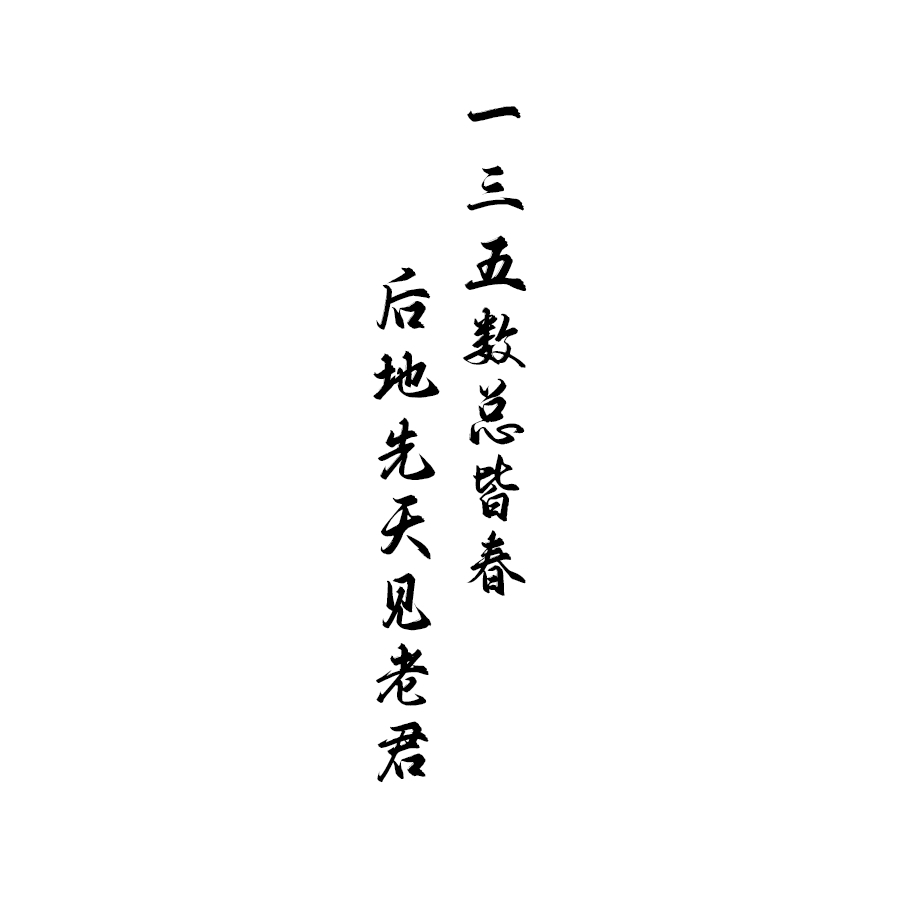 一三五数总皆春
后地先天见老君